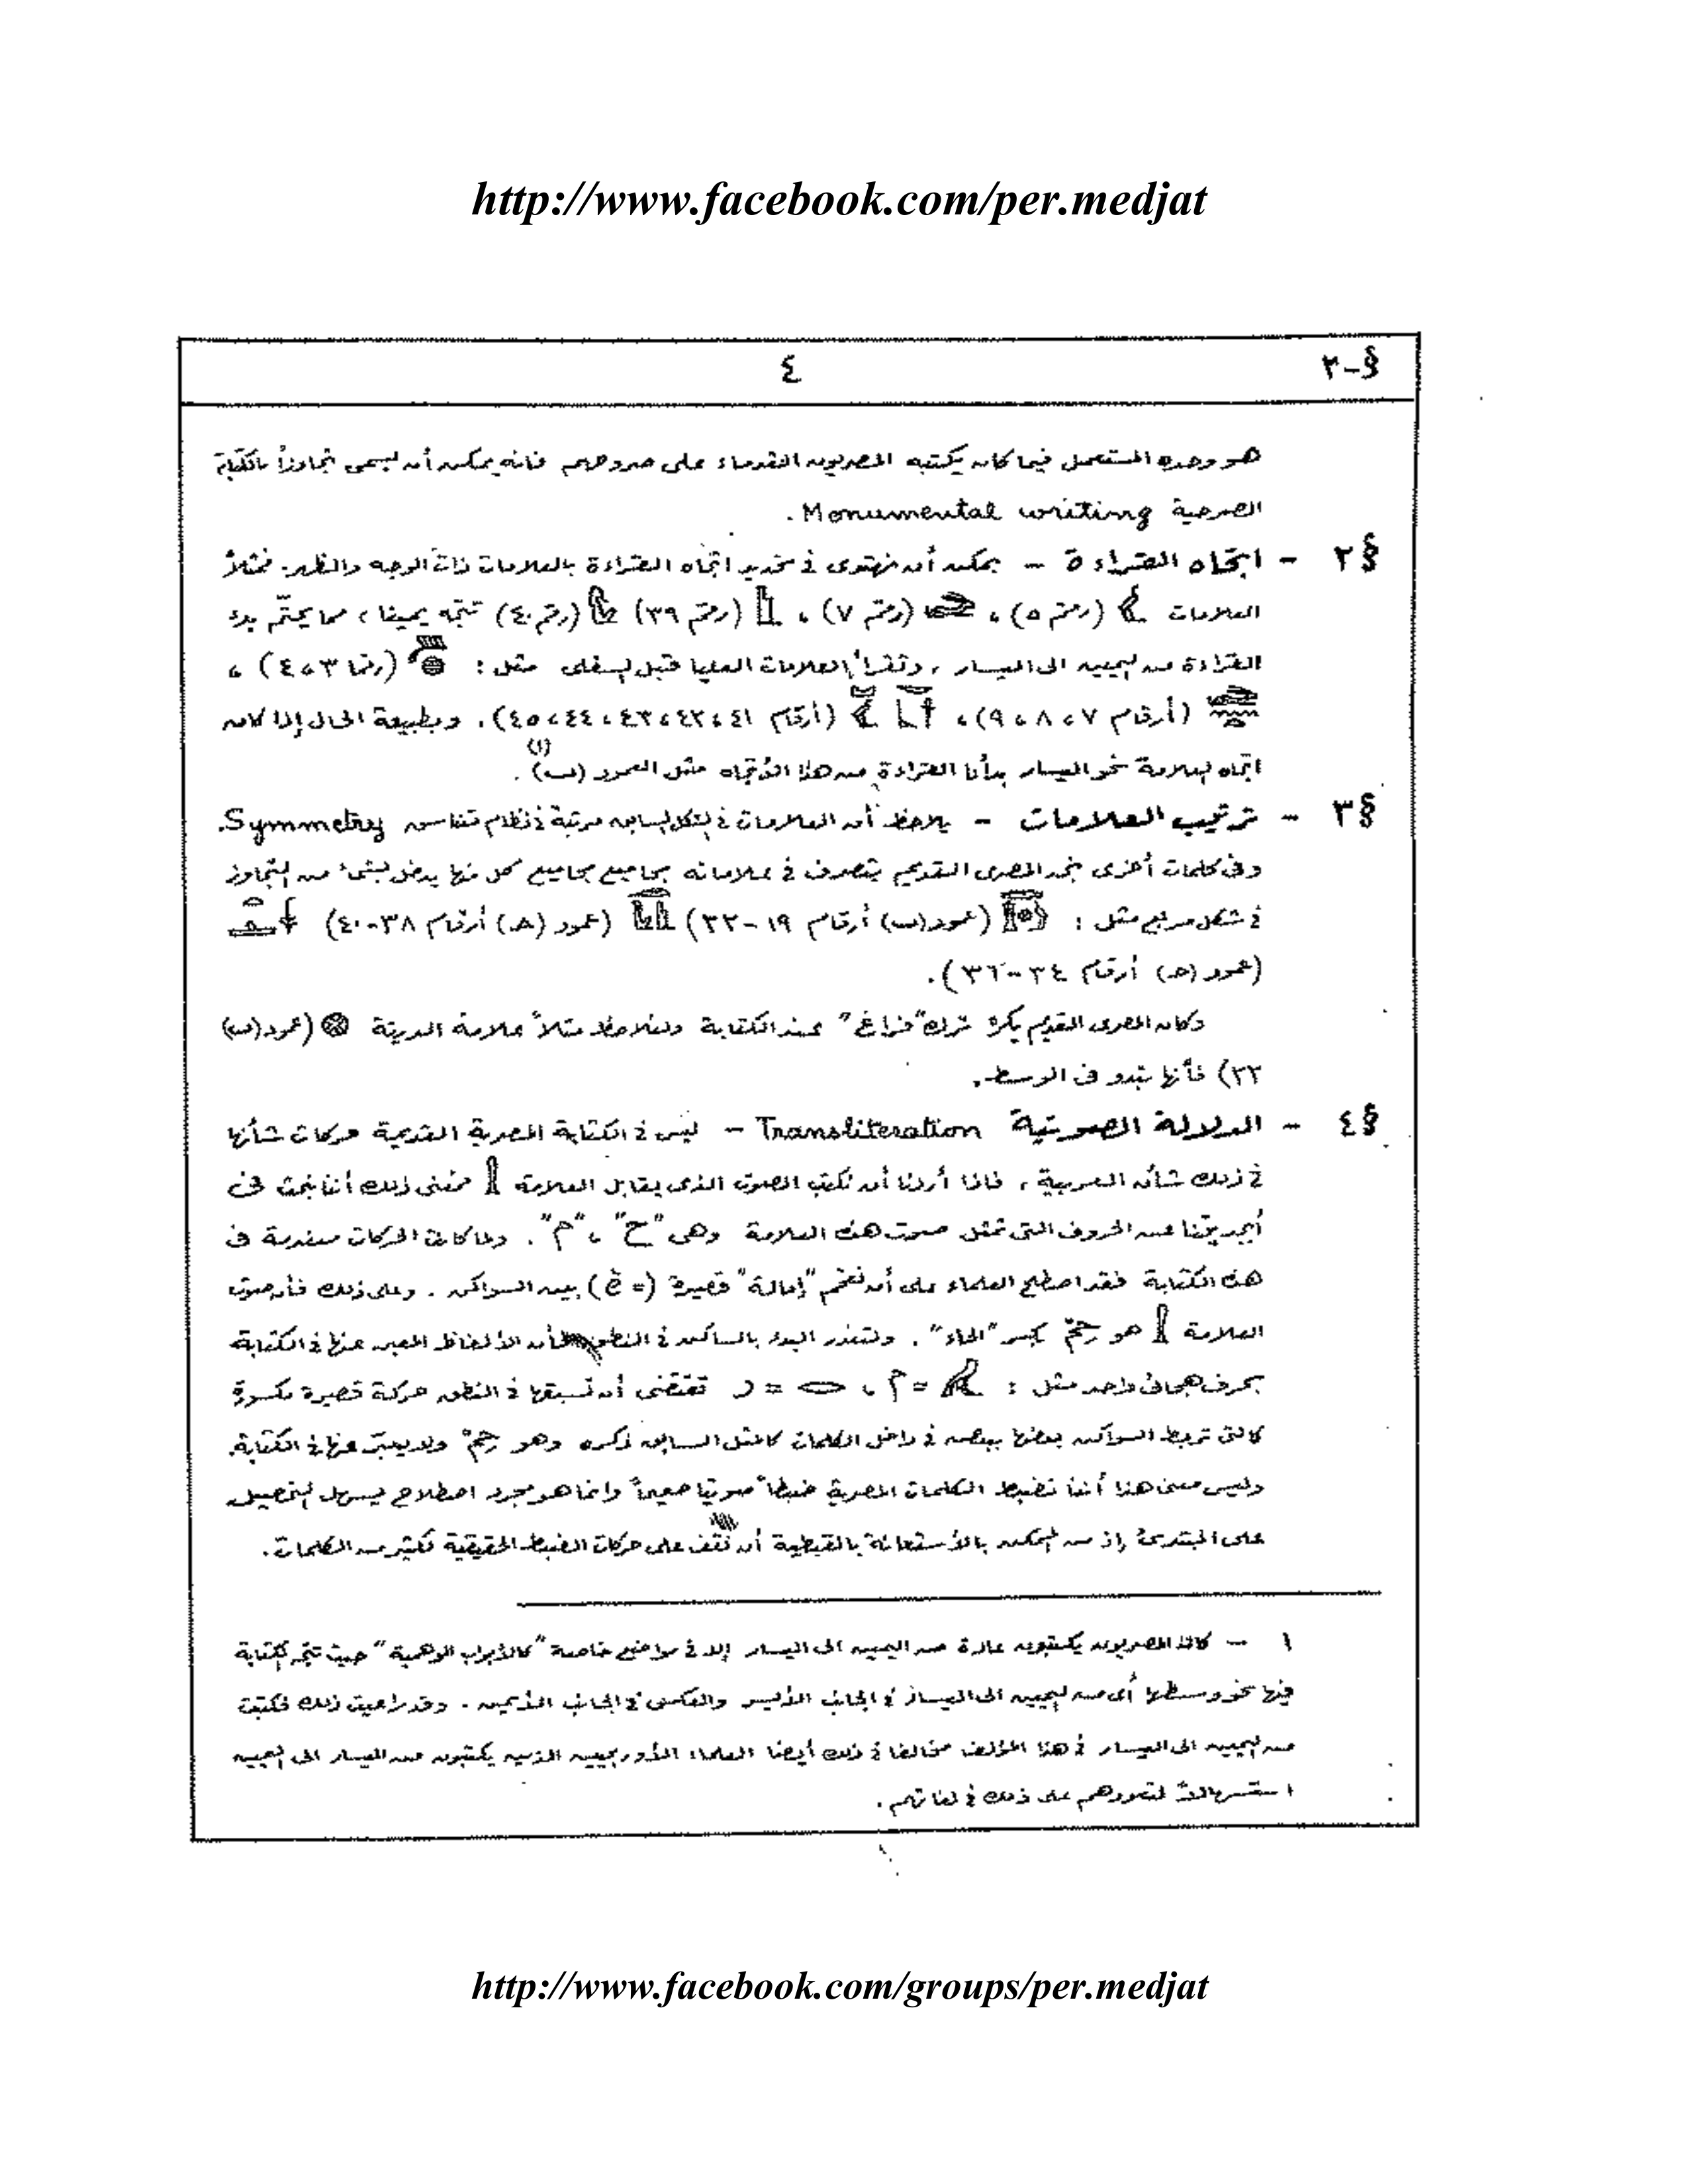 http://www.facebook.com/per.medjat
§-٢ ٤
هو وحده المستعمل فيما كان يكتبه المصريون القدماء على صروحهم فانه يمكن أن يسمى تجاوزاً بالكتابة
الصرحية Monumental writing.
§٢ - اتجاه القراءة - يمكن أن نهتدى فى تحديد اتجاه القراءة بالعلامات ذات الوجه والظهر. فمثلاً
العلامات (رقم ٥)، (رقم ٧)، (رقم ٣٩) (رقم ٤٠) تتجه يمينا، مما يحتّم بدء
القراءة من اليمين الى اليسار، وتقرأ العلامات العليا قبل السفلى مثل: (رقما ٣،٤)،
(أرقام ٧، ٨، ٩)، (أرقام ٤١، ٤٢، ٤٣، ٤٤، ٤٥). وبطبيعة الحال إذا كان
اتجاه العلامة نحو اليسار بدأنا القراءة من هذا الأتجاه مثل العمود (ب)(١).
§٣ - ترتيب العلامات - يلاحظ أن العلامات فى الشكل السابق مرتبة فى نظام متناسق Symmetry.
وفى كلمات أخرى نجد المصرى القديم يتصرف فى علاماته مجاميع مجاميع كل منها يدخل بشىء من التجاوز
فى شكل مربع مثل: (عمود (ب) أرقام ١٩-٢٢) (عمود (حـ) أرقام ٣٨-٤٠)
(عمود (حـ) أرقام ٣٤-٣٦).
وكان المصرى القديم يكره ترك "فراغ" عند الكتابة ولنلاحظ مثلاً علامة المدينة (عمود (ب)
٢٢) فأنها تبدو فى الوسط.
§٤ - الدلالة الصوتية Transliteration - ليس فى الكتابة المصرية القديمة حركات شأنها
فى ذلك شأن العربية، فاذا أردنا أن نكتب الصوت الذى يقابل العلامة فمعنى ذلك أننا نبحث فى
أبجديتنا عن الحروف التى تمثل صوت هذه العلامة وهى "ح"، "م". ولما كانت الحركات منعدمة فى
هذه الكتابة فقد اصطلح العلماء على أن نقحم "إمالة" قصيرة (= ĕ) بين السواكن. وعلى ذلك فأن صوت
العلامة هو حِمْ بكسر "الحاء". ولتعذر البدء بالساكن فى النطق فأن الألفاظ المعبر عنها فى الكتابة
بحرف هجائى واحد مثل: = م، = ر تقتضى أن تسبقها فى النطق حركة قصيرة مكسورة
كالتى تربط السواكن بعضها ببعض فى داخل الكلمات كالمثل السابق ذكره وهو حِمْ ولا يعبّر عنها فى الكتابة.
وليس معنى هذا أننا نضبط الكلمات المصرية ضبطاً صوتيا صحيحاً وانما هو مجرد اصطلاح يسهل التحصيل
على المبتدئ إذ من الممكن بالأستعانة بالقبطية أن نقف على حركات الضبط الحقيقية لكثير من الكلمات.
١ - كان المصريون يكتبون عادة من اليمين الى اليسار إلا فى مواضع خاصة "كالأبواب الوهمية" حيث تتجه الكتابة
فيها نحو وسطها أى من اليمين الى اليسار فى الجانب الأيسر والعكس فى الجانب الأيمن. وقد راعيت ذلك فكتبت
من اليمين الى اليسار فى هذا المؤلف مخالفا فى ذلك أيضا العلماء الأوربيين الذين يكتبون من اليسار الى اليمين
استسهالاً لتعودهم على ذلك فى لغاتهم.
http://www.facebook.com/groups/per.medjat